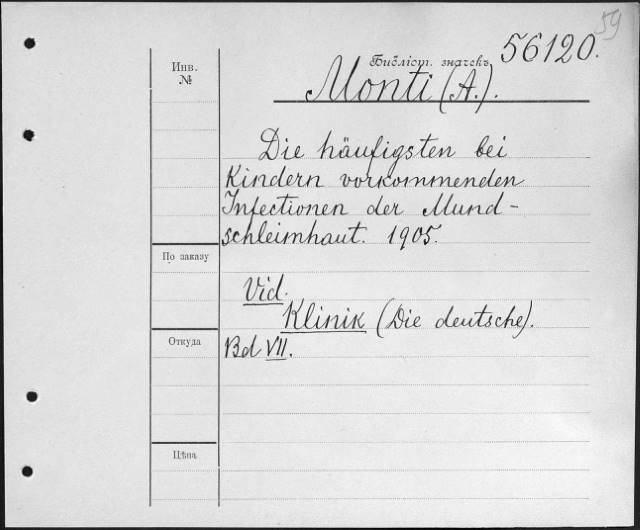 59
Инв.
№
Библіот. значекъ 56120.
Monti (A.).
Die häufigsten bei
Kindern vorkommenden
Infectionen der Mund-
schleimhaut. 1905.
По заказу
Vid.
Klinik (Die deutsche).
Откуда
Bd VII.
Цѣна